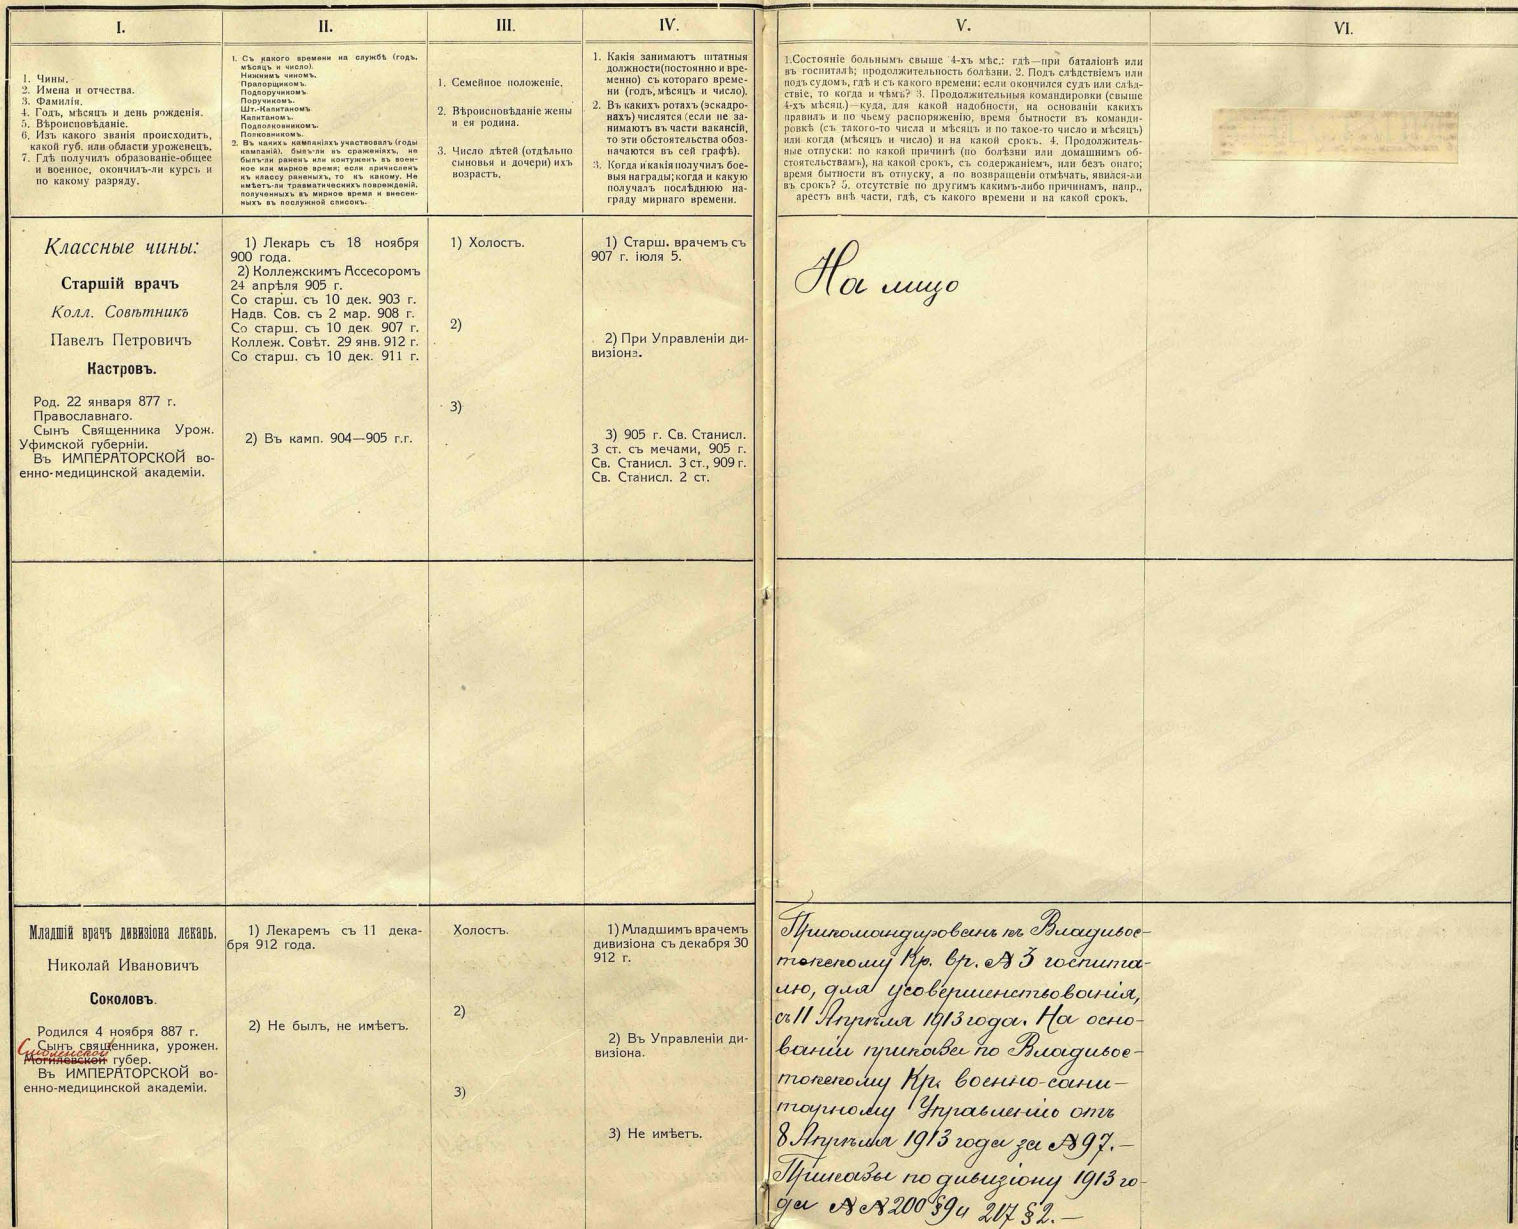 I.
1. Чины.
2. Имена и отчества.
3. Фамилія.
4. Годъ, мѣсяцъ и день рожденія.
5. Вѣроисповѣданіе.
6. Изъ какого званія происходитъ,
какой губ. или области уроженецъ.
7. Гдѣ получилъ образованіе-общее
и военное, окончилъ-ли курсъ и
по какому разряду.
II.
1. Съ какого времени на службѣ (годъ,
мѣсяцъ и число).
Нижнимъ чиномъ.
Прапорщикомъ.
Подпоручикомъ.
Поручикомъ.
Шт.-Капитаномъ.
Капитаномъ.
Подполковникомъ.
Полковникомъ.
2. Въ какихъ кампаніяхъ участвовалъ (годы
кампаній), былъ-ли въ сраженіяхъ, не
былъ-ли раненъ или контуженъ въ воен-
ное или мирное время; если причисленъ
къ классу раненыхъ, то къ какому. Не
имѣетъ-ли травматическихъ поврежденій,
полученныхъ въ мирное время и внесен-
ныхъ въ послужной списокъ.
III.
1. Семейное положеніе.
2. Вѣроисповѣданіе жены
и ея родина.
3. Число дѣтей (отдѣльно
сыновья и дочери) ихъ
возрастъ.
IV.
1. Какія занимаютъ штатныя
должности (постоянно и вре-
менно) съ котораго време-
ни (годъ, мѣсяцъ и число).
2. Въ какихъ ротахъ (эскадро-
нахъ) числятся (если не за-
нимаютъ въ части вакансій,
то эти обстоятельства обоз-
начаются въ сей графѣ).
3. Когда и какія получилъ бое-
выя награды; когда и какую
получалъ послѣднюю на-
граду мирнаго времени.
V.
1.Состояніе больнымъ свыше 4-хъ мѣс.: гдѣ—при баталіонѣ или
въ госпиталѣ; продолжительность болѣзни. 2. Подъ слѣдствіемъ или
подъ судомъ, гдѣ и съ какого времени: если окончился судъ или слѣд-
ствіе, то когда и чѣмъ? 3. Продолжительныя командировки (свыше
4-хъ мѣсяц.)—куда, для какой надобности, на основаніи какихъ
правилъ и по чьему распоряженію, время бытности въ команди-
ровкѣ (съ такого-то числа и мѣсяцъ и по такое-то число и мѣсяцъ)
или когда (мѣсяцъ и число) и на какой срокъ. 4. Продолжитель-
ные отпуски: по какой причинѣ (по болѣзни или домашнимъ об-
стоятельствамъ), на какой срокъ, съ содержаніемъ, или безъ онаго;
время бытности въ отпуску, а по возвращеніи отмѣчать, явился-ли
въ срокъ? 5. отсутствіе по другимъ какимъ-либо причинамъ, напр.,
арестъ внѣ части, гдѣ, съ какого времени и на какой срокъ.
VI.
Классные чины:
Старшій врачъ
Колл. Совѣтникъ
Павелъ Петровичъ
Кастровъ.
Род. 22 января 877 г.
Православнаго.
Сынъ Священника Урож.
Уфимской губерніи.
Въ ИМПЕРАТОРСКОЙ во-
енно-медицинской академіи.
1) Лекарь съ 18 ноября
900 года.
2) Коллежскимъ Ассесоромъ
24 апрѣля 905 г.
Со старш. съ 10 дек. 903 г.
Надв. Сов. съ 2 мар. 908 г.
Со старш. съ 10 дек 907 г.
Коллеж. Совѣт. 29 янв. 912 г.
Со старш. съ 10 дек. 911 г.
2) Въ камп. 904—905 г.г.
1) Холостъ.
2)
3)
1) Старш. врачемъ съ
907 г. іюля 5.
2) При Управленіи ди-
визіона.
3) 905 г. Св. Станисл.
3 ст. съ мечами, 905 г.
Св. Станисл. 3 ст., 909 г.
Св. Станисл. 2 ст.
На лицо
Младшій врачъ дивизіона лекарь.
Николай Ивановичъ
Соколовъ.
Родился 4 ноября 887 г.
Сынъ священника, урожен.
Смоленской
Могилевской губер.
Въ ИМПЕРАТОРСКОЙ во-
енно-медицинской академіи.
1) Лекаремъ съ 11 дека-
бря 912 года.
2) Не былъ, не имѣетъ.
Холостъ.
2)
3)
1) Младшимъ врачемъ
дивизіона съ декабря 30
912 г.
2) Въ Управленіи ди-
визіона.
3) Не имѣетъ.
Прикомандированъ къ Владивос-
токскому Кр. вр. № 3 госпита-
лю, для усовершенствованія,
съ 11 Апрѣля 1913 года. На осно-
ваніи приказа по Владивос-
токскому Кр. военно-сани-
тарному Управленію отъ
8 Апрѣля 1913 года за № 97.—
Приказы по дивизіону 1913 го-
да № № 200 § 9 и 217 § 2.—